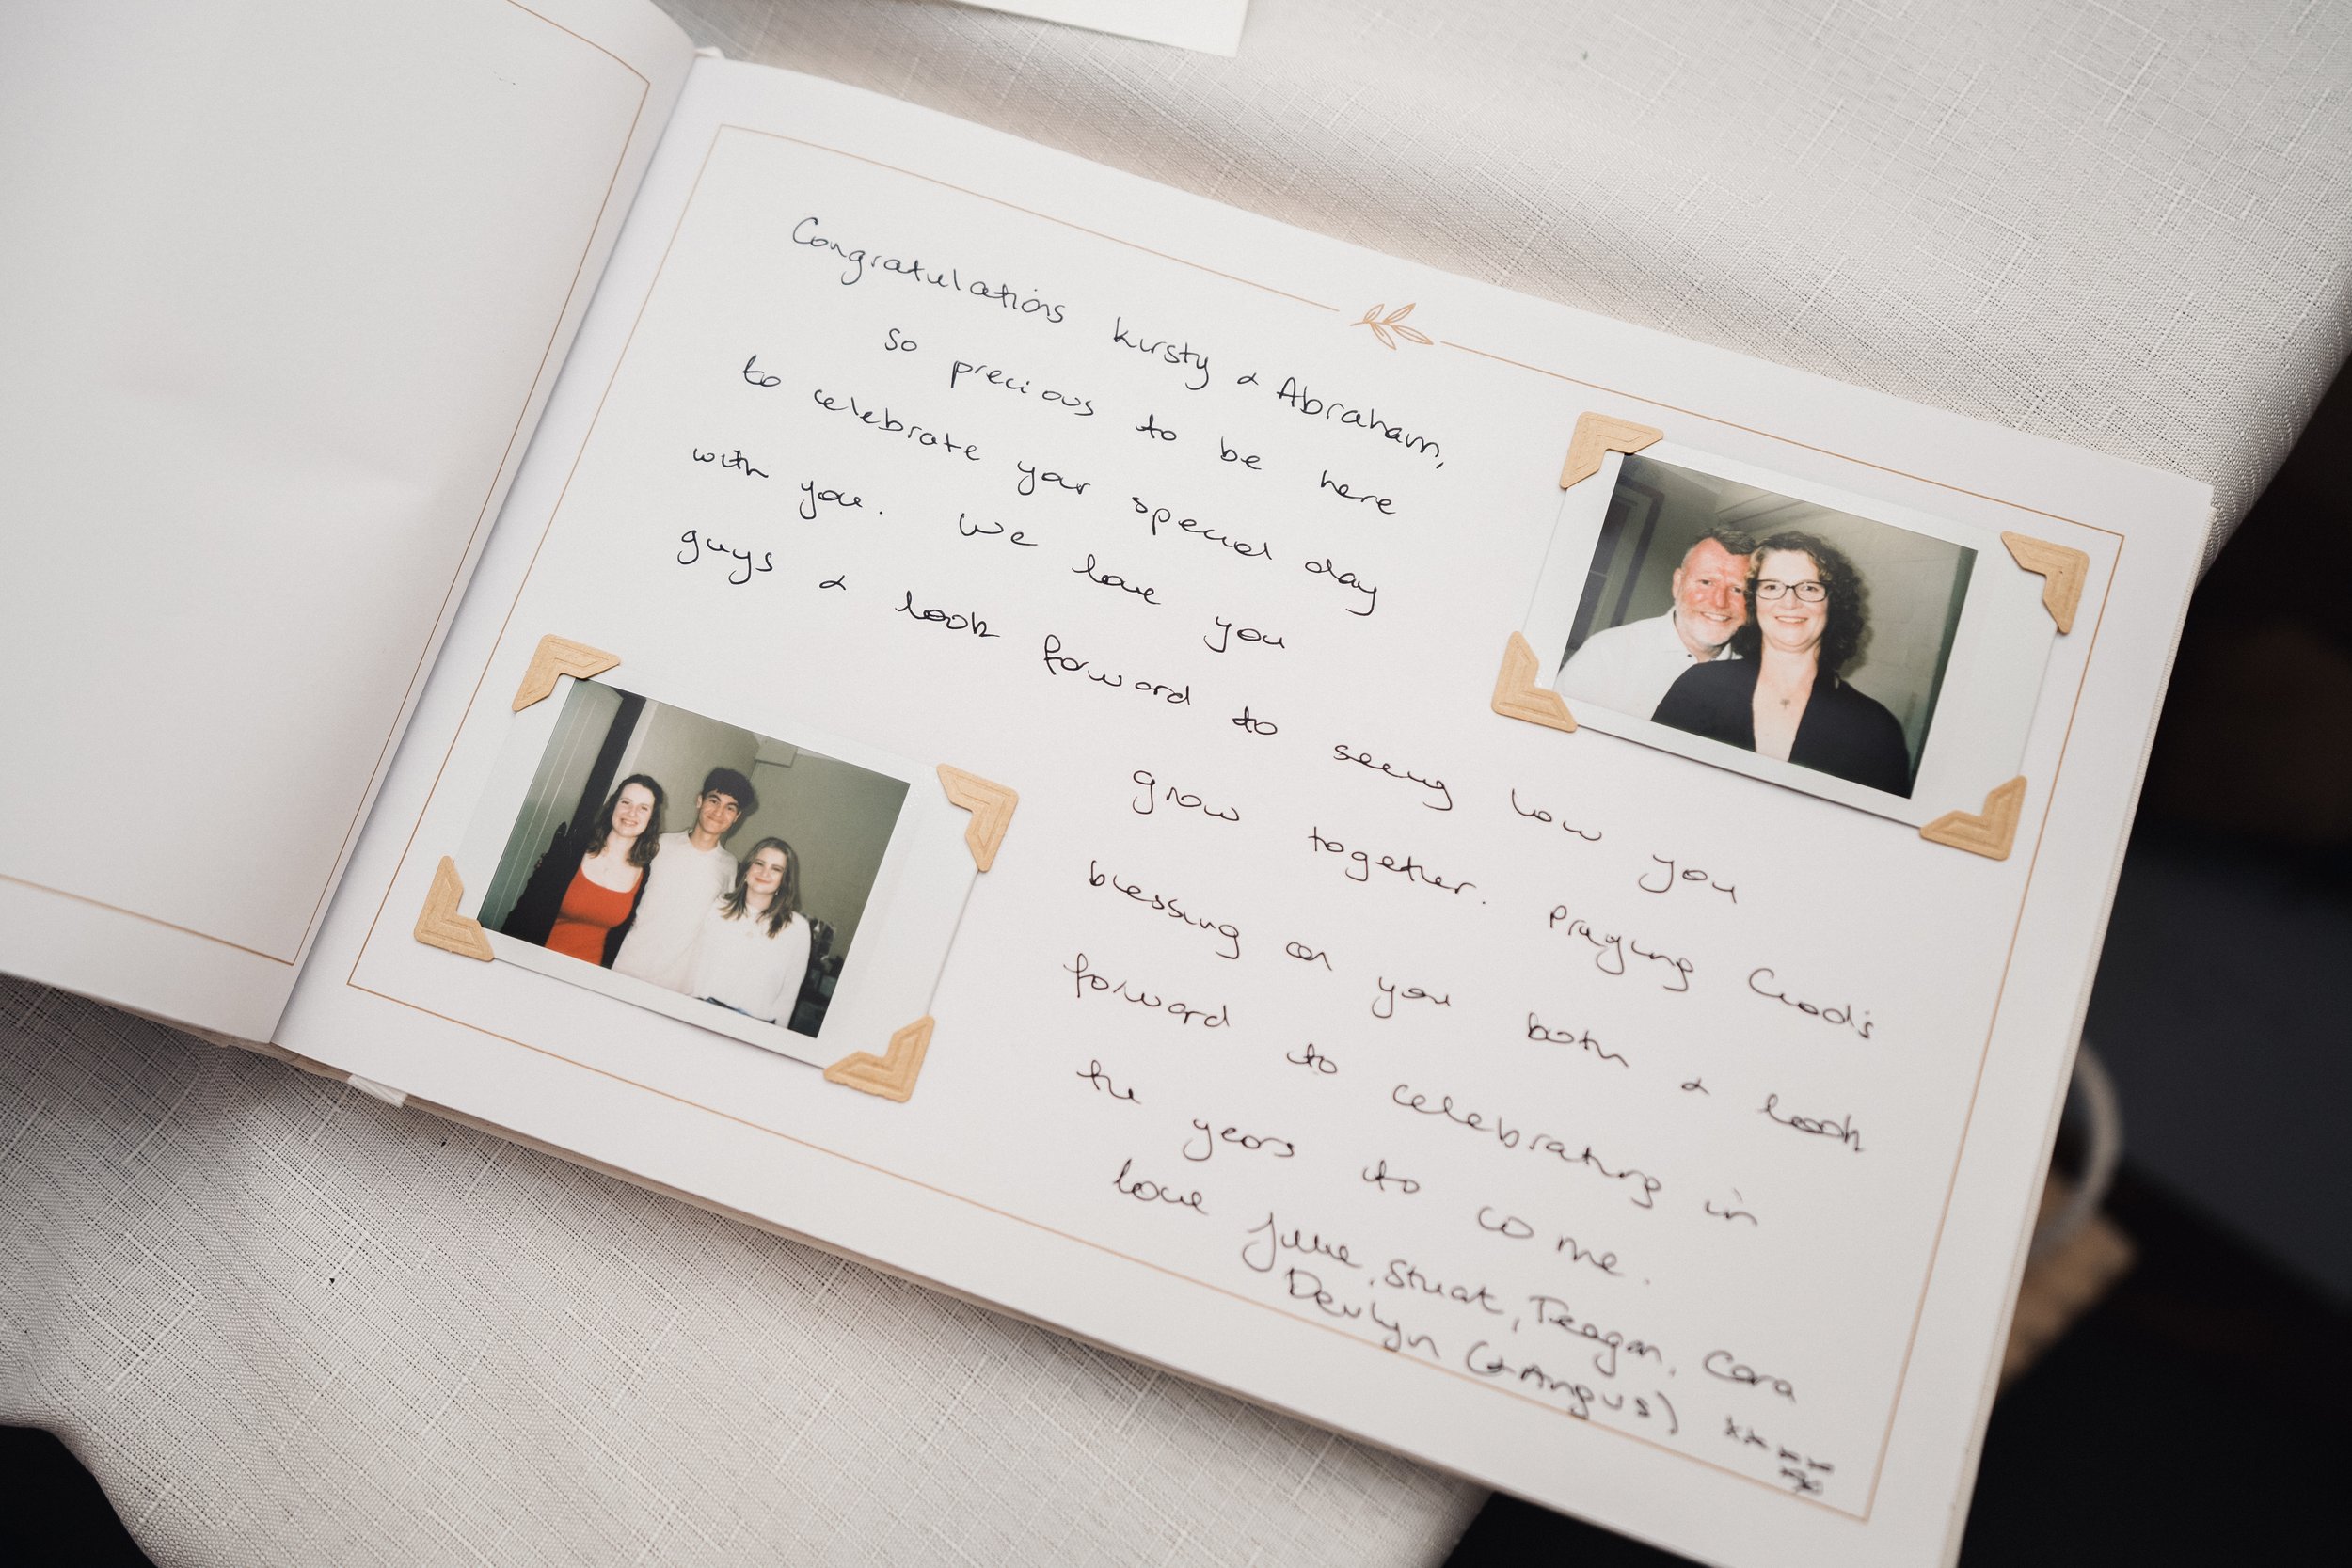 Congratulations Kirsty & Abraham,
So precious to be here
to celebrate your special day
with you. We love you
guys & look forward to seeing how you
grow together. Praying God's
blessing on you both & look
forward to celebrating in
the years to come.
love Julie, Stuart, Teagan, Cara
Devlyn (& Angus) xxxx